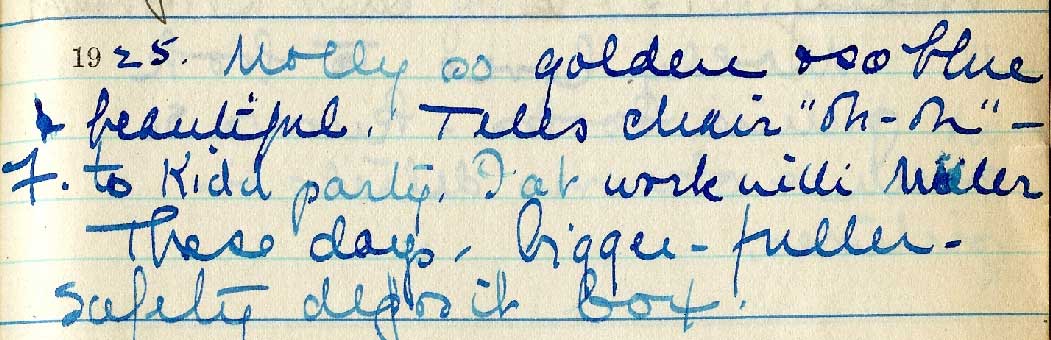 1925. Molly so golden & so blue
& beautiful. Tells chair "oh-oh" –
F. to Kidd party. I at work with Miller
These days, bigger – fuller –
Safety deposit box.